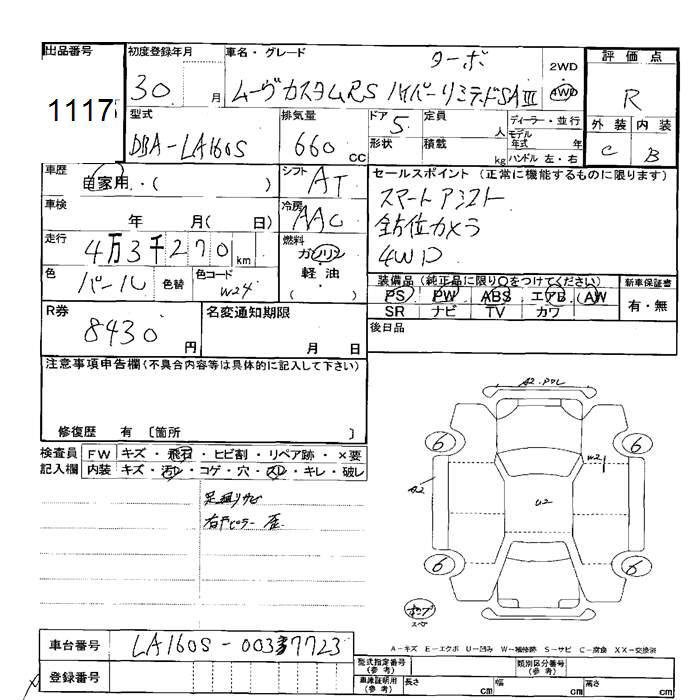 出品番号
1117
初度登録年月
30 月
車名・グレード
ターボ
ムーヴカスタムRS ハイパーリミテッドSAⅢ
2WD
4WD
評価点
R
外装 内装
C B
型式
DBA-LA160S
排気量
660 CC
ドア 5
形状
定員 人
積載 kg
ディーラー・並行
モデル年式 年
ハンドル 左・右
車歴
自家用・( )
シフト AT
車検
年 月( 日)
冷房 AAC
走行
4万3千270 km
燃料
ガソリン
軽油
( )
色
パール 色替
色コード
W24
セールスポイント(正常に機能するものに限ります)
スマートアシスト
全方位カメラ
4WD
装備品(純正品に限り○をつけてください)
PS PW ABS エアB AW
SR ナビ TV カワ
新車保証書
有・無
後日品
R券
8430 円
名変通知期限
月 日
注意事項申告欄(不具合内容等は具体的に記入して下さい)
修復歴 有 〔箇所 〕
検査員
記入欄
FW キズ・飛石・ヒビ割・リペア跡・×要
内装 キズ・汚レ・コゲ・穴・スレ・キレ・破レ
足廻りサビ
右
ピラー
A2
6 6
W2
A2
U2
6 6
A-キズ E-エクボ U-凹み W-補修跡 S-サビ C-腐食 XX-交換済
車台番号
LA160S-0037723
登録番号
型式指定番号
(参考)
類別区分番号
(参考)
車庫証明用
(参考)
長さ cm
幅 cm
高さ cm